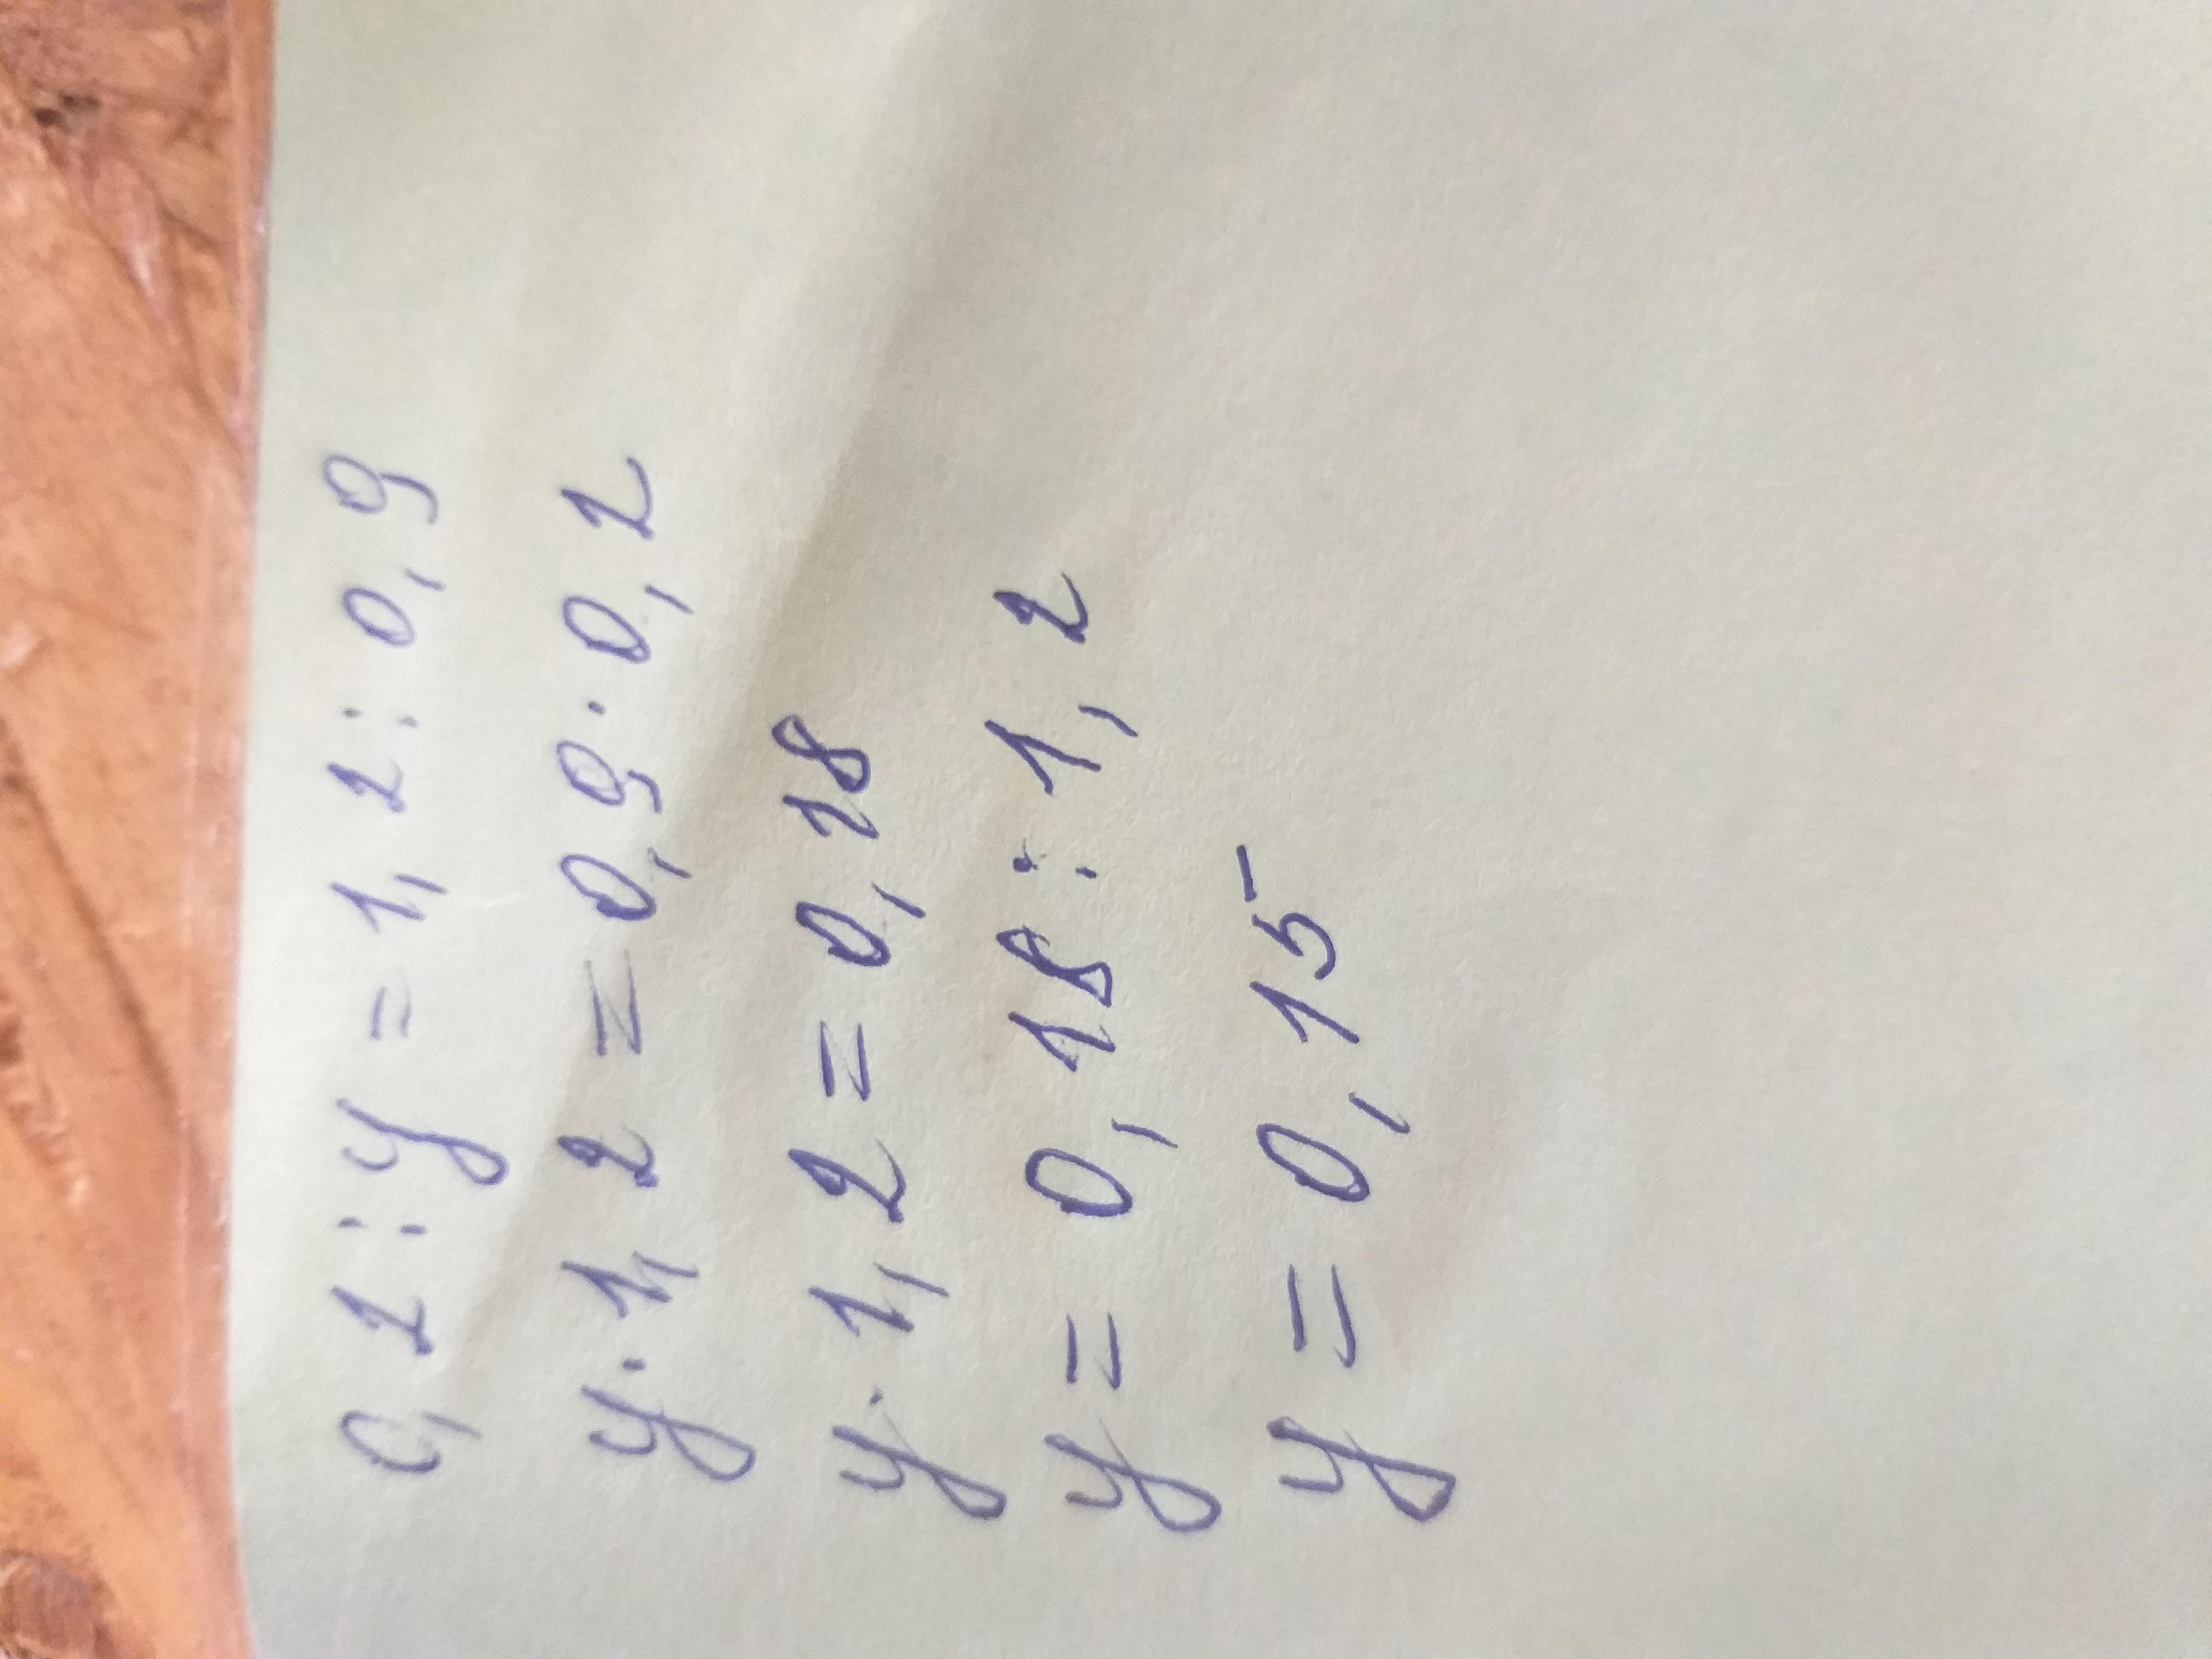 0,2 : y = 1,2 : 0,9
y · 1,2 = 0,9 · 0,2
y · 1,2 = 0,18
y = 0,18 : 1,2
y = 0,15